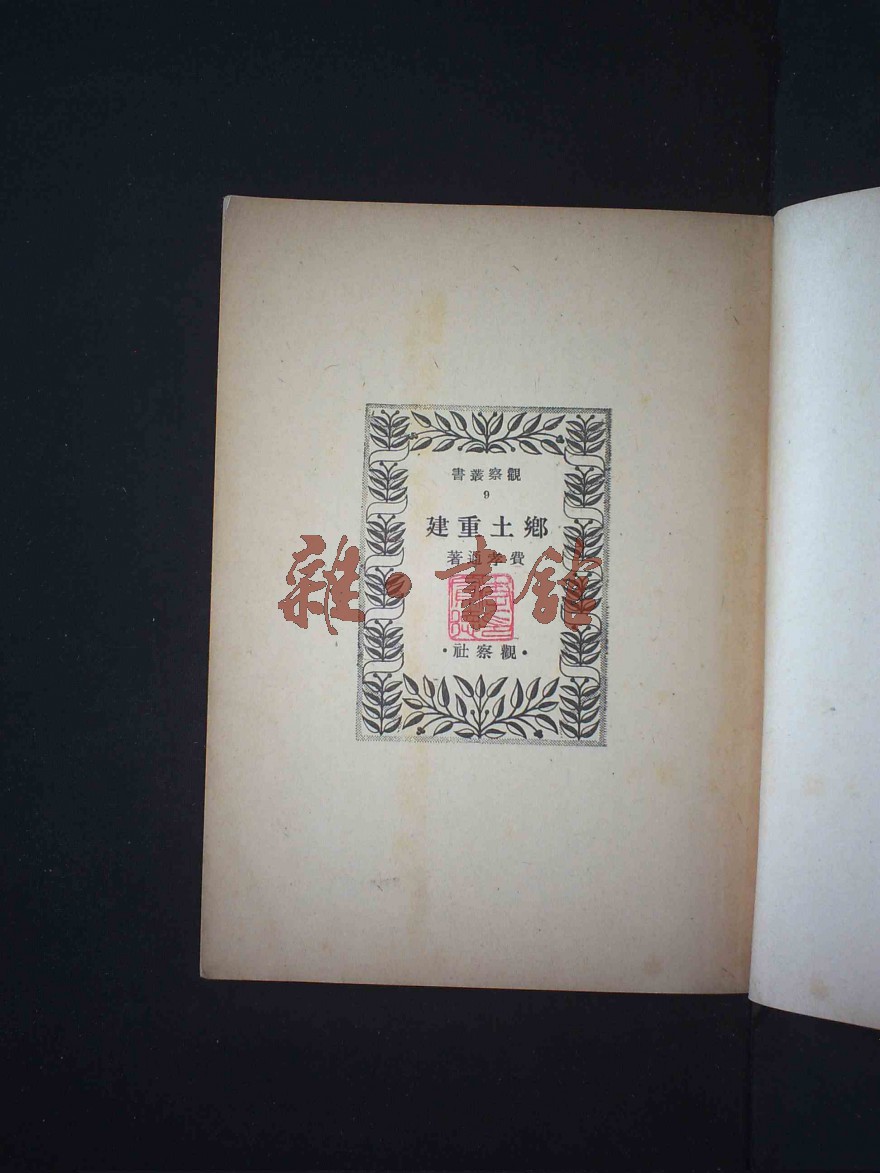 觀察叢書
9
鄉土重建
費孝通著
·觀察社·
雜·書館